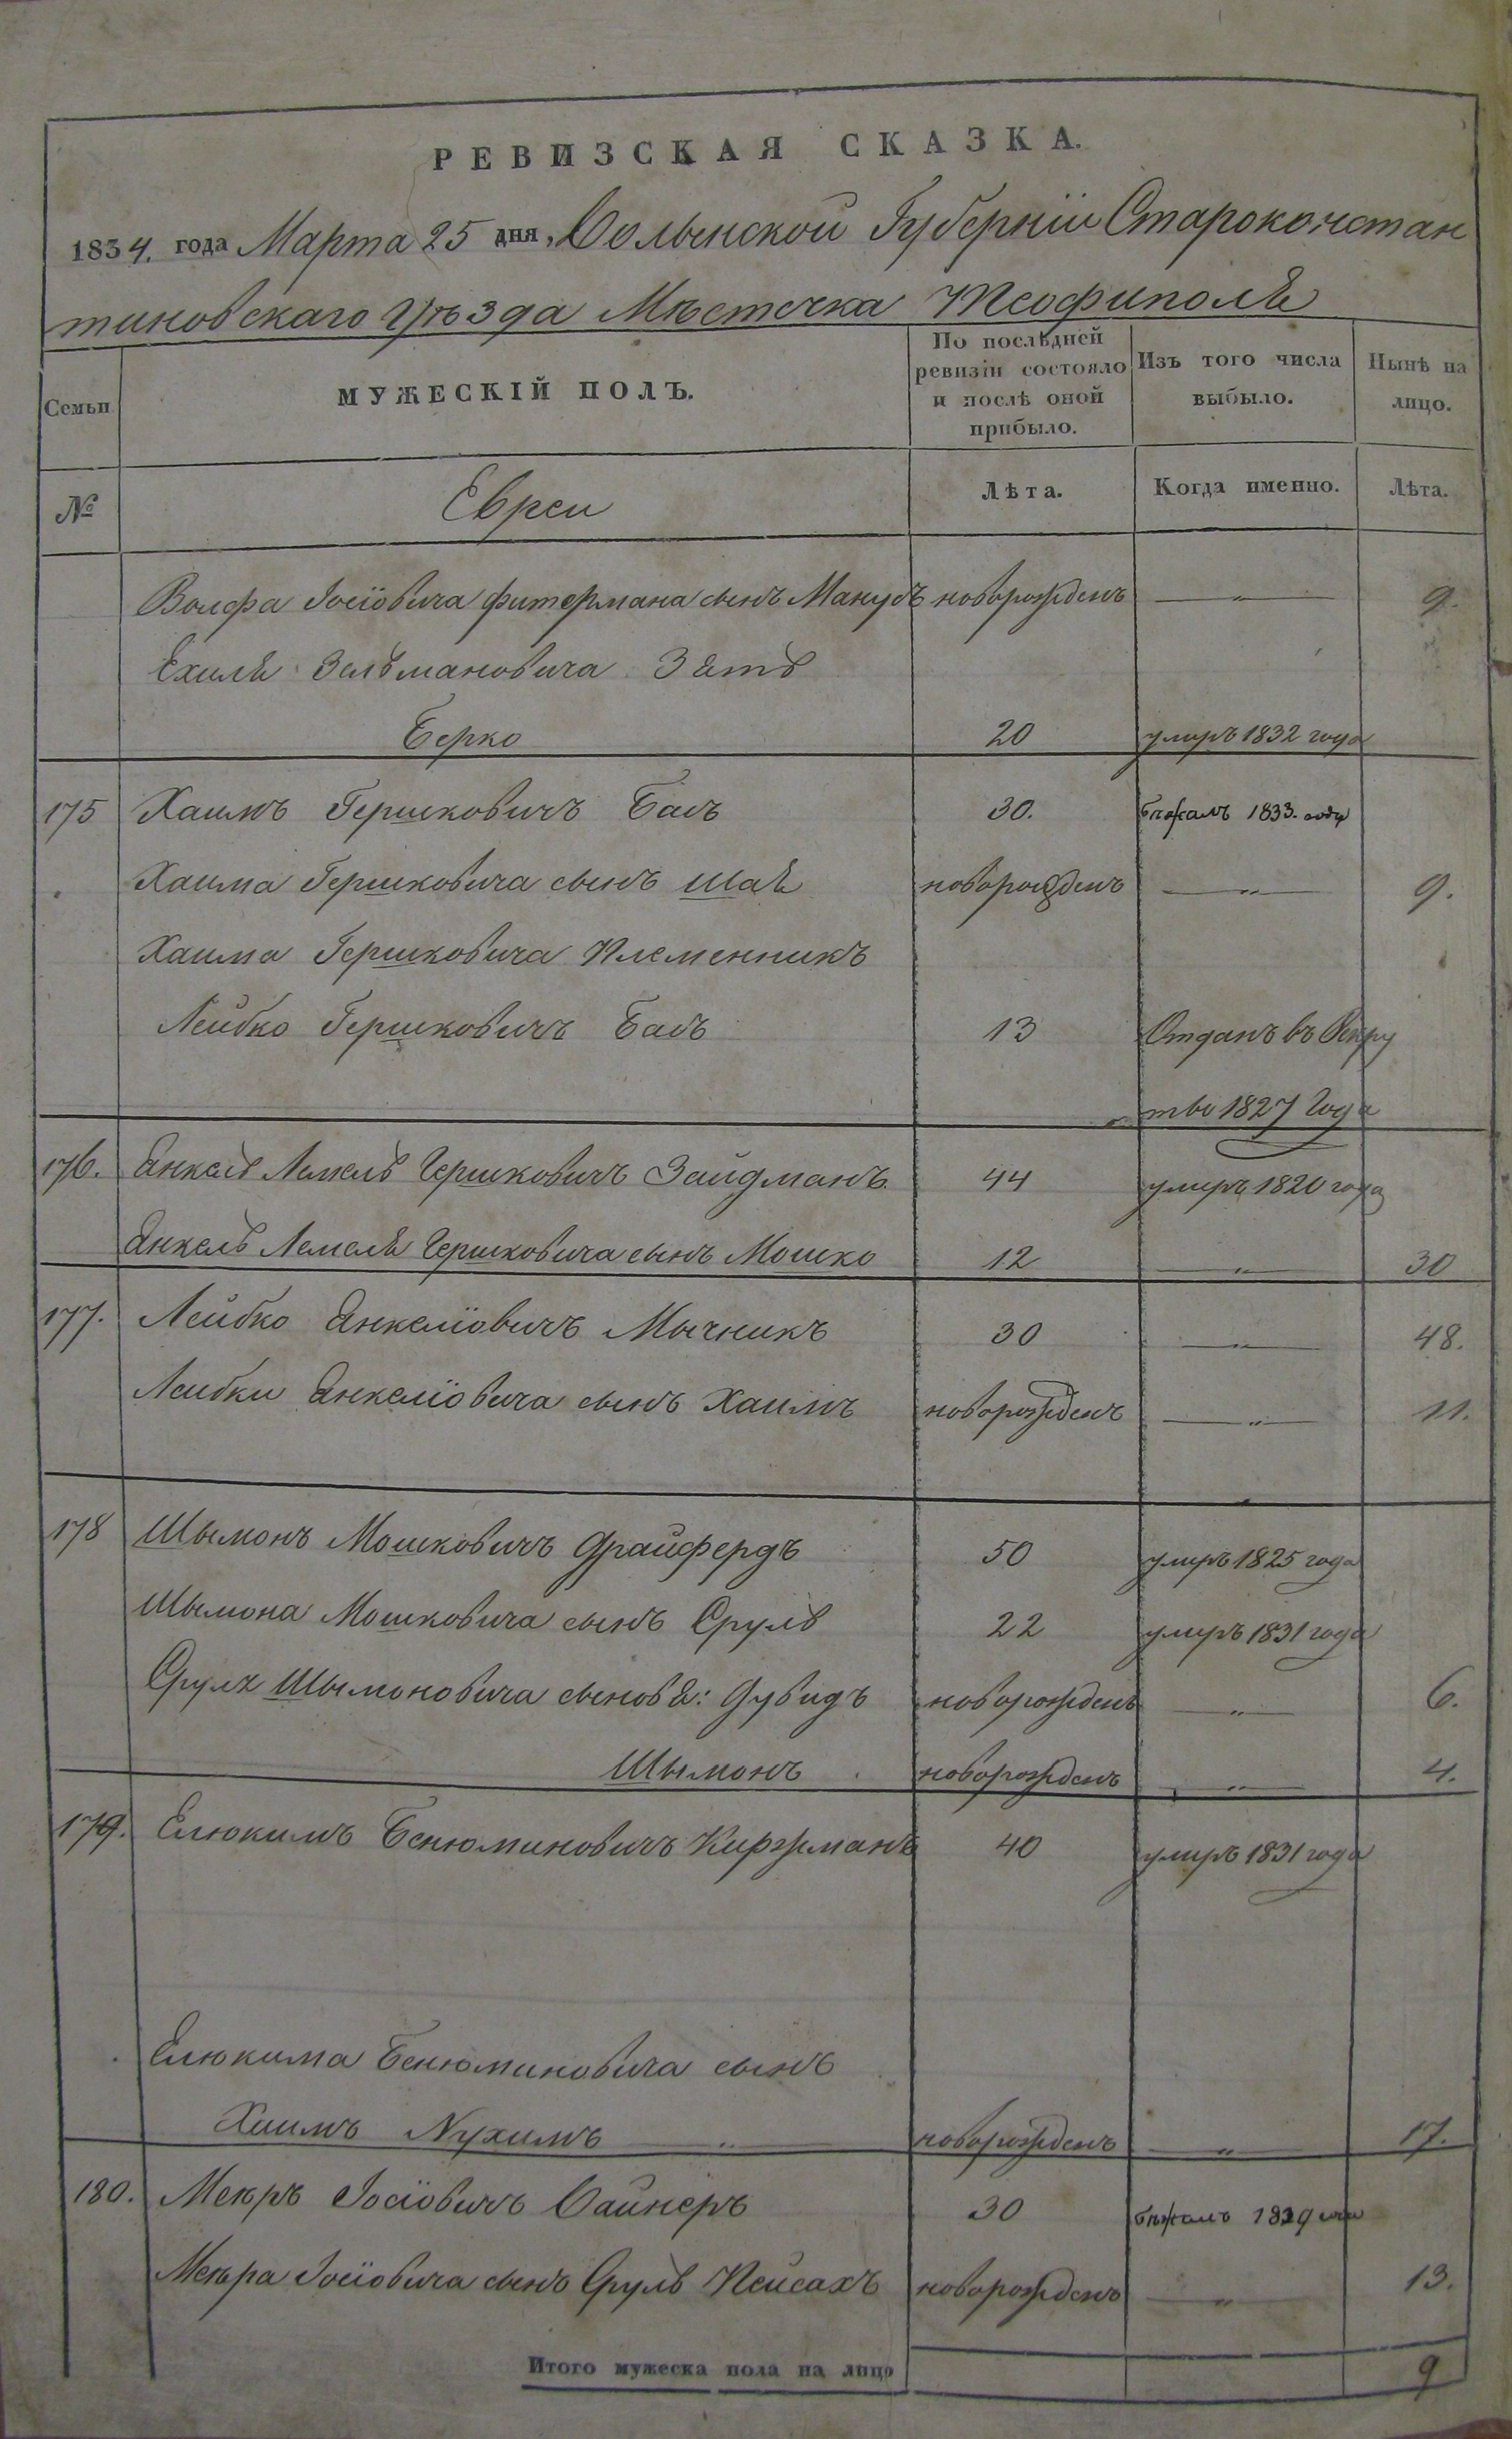 РЕВИЗСКАЯ СКАЗКА.
1834. года Марта 25 дня, Волынской Губерніи Староконстан
тиновскаго Уѣзда Мѣстечка Теофиполя
Семьи
МУЖЕСКІЙ ПОЛЪ.
По послѣдней ревизіи состояло и послѣ оной прибыло.
Изъ того числа выбыло.
Нынѣ на лицо.
№
Евреи
Лѣта.
Когда именно.
Лѣта.
Волфа Іосіовича фитермана сынъ Манусъ новорожденъ —„— 9.
Ехиля Зельмановича Зять
Берко 20 умиръ 1832 года
175 Хаимъ Гершковичъ Басъ 30. бѣжалъ 1833. году
Хаима Гершковича сынъ Шая новорожденъ —„— 9.
Хаима Гершковича Племенникъ
Лейбко Гершковичъ Басъ 13 Отданъ въ Рекру
тво 1827 Года
176. Янкель Лемель Гершковичъ Зайдманъ 44 умиръ 1820 года
Янкель Лемеля Гершковича сынъ Мошко 12 —„— 30
177. Лейбко Янкеліовичъ Мычникъ 30 —„— 48.
Лейбки Янкеліовича сынъ Хаимъ новорожденъ —„— 11.
178 Шымонъ Мошковичъ Драйфердъ 50 умиръ 1825 года
Шымона Мошковича сынъ Сруль 22 умиръ 1831 года
Сруля Шымоновича сыновя: Дувидъ новорожденъ —„— 6.
Шымонъ новорожденъ —„— 4.
179. Елюкимъ Бенюминовичъ Киржманъ 40 умиръ 1831 года
Елюкима Бенюминовича сынъ
Хаимъ Нухимъ —„— новорожденъ —„— 17.
180. Меюръ Іосіовичъ Вайнеръ 30 бѣжалъ 1829
Меюра Іосіовича сынъ Сруль Пейсахъ новорожденъ —„— 13.
Итого мужеска пола на лицо 9